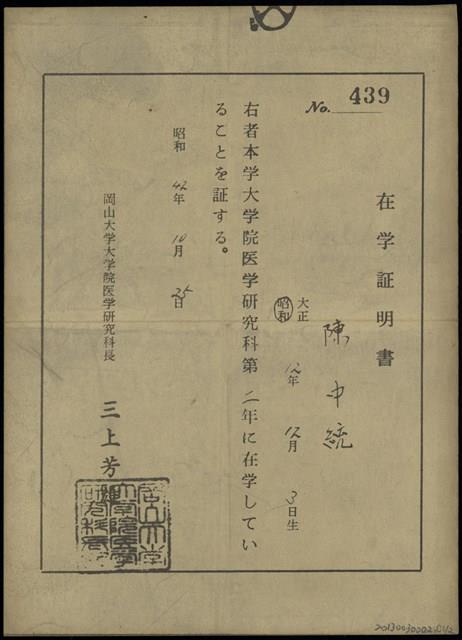 No. 439
在学証明書
陳中統
大正
昭和 12年 12月 3日生
右者本学大学院医学研究科第二年に在学してい
ることを証する。
昭和 42年 10月 25日
岡山大学大学院医学研究科長
三上芳